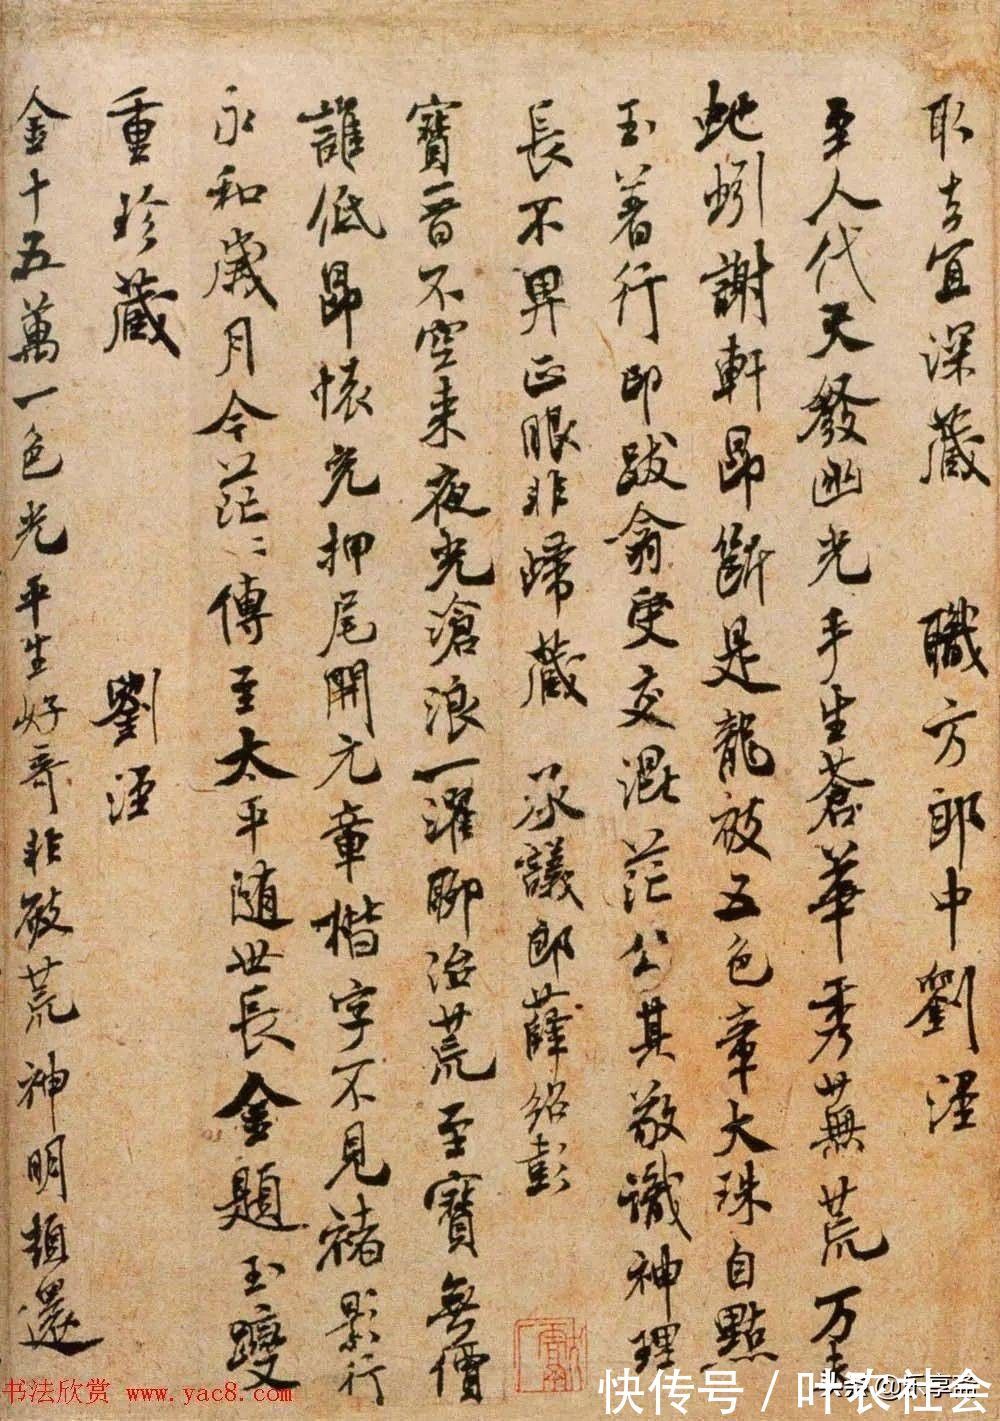 取去宜深藏 職方郎中劉涇
至人代天發幽光手生蒼華秀蕪荒万
虵蚓謝軒昂斷是龍被五色章大珠自點
玉著行印跋翕受交混茫公其敬識神理
長不畀正眼非歸藏 承議郎薛紹彭
寶晉不空来夜光滄浪一濯聊治荒至寶無價
誰低昂懷充押尾開元章楷字不見褚影行
永和歲月今茫〻傳至太平随世長金題玉躞
重珍藏 劉涇
金十五萬一色光平生好奇非破荒神明頓還
书法欣赏 www.yac8.com
快传号/叶农社会